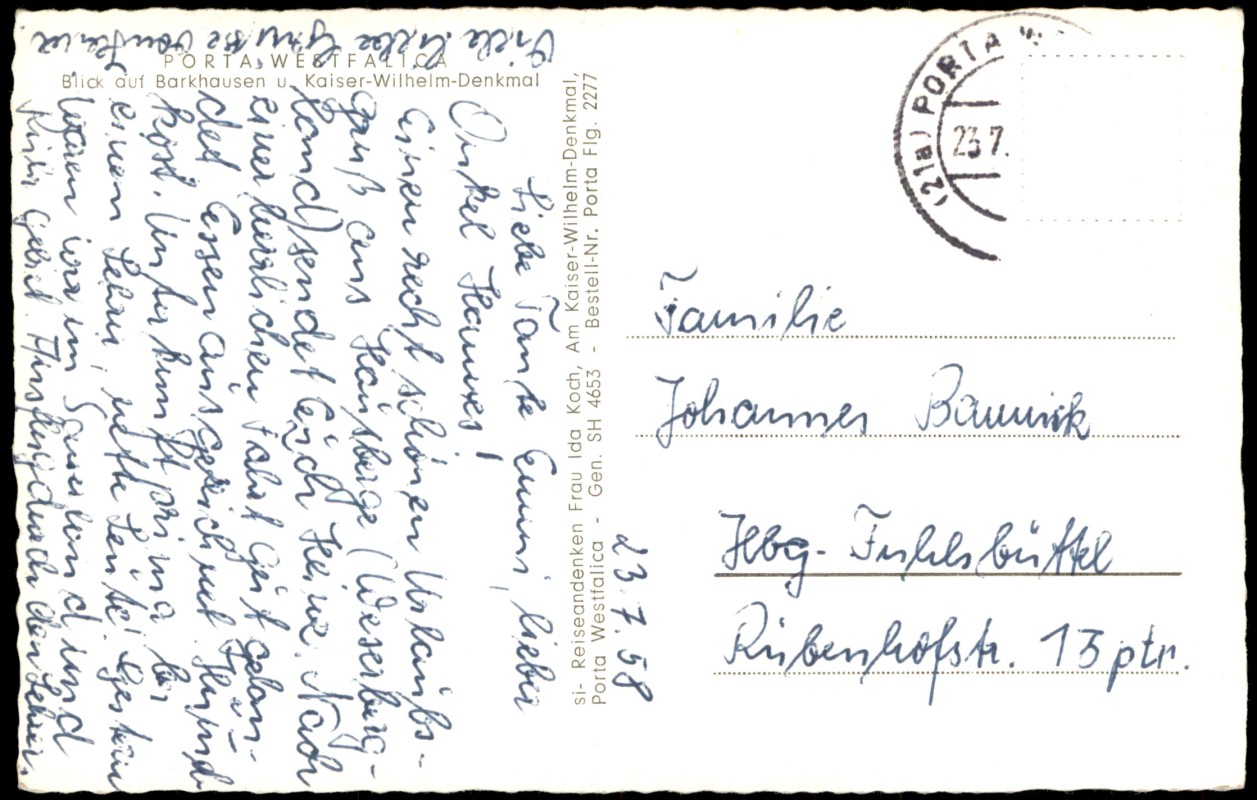 PORTA WESTFALICA
Blick auf Barkhausen u. Kaiser-Wilhelm-Denkmal
23.7.58
Liebe Tante Emmi, lieber
Onkel Hannes!
Einen recht schönen Urlaubs-
gruß aus Hausberge (Weserberg-
land) sendet Euch Heine. Nach
einer herrlichen Fahrt gut gelan-
det. Essen ausgezeichnet.
kost. Unterkunft prima bei
einem Lehrer, nette Leute. Gestern
waren wir im Sauerland und
Ruhrgebiet.
Viele liebe Grüße von Heine
si- Reiseandenken Frau Ida Koch, Am Kaiser-Wilhelm-Denkmal,
Porta Westfalica - Gen. SH 4653 - Bestell-Nr. Porta Flg. 2277
(21a) PORTA W
23.7.
Familie
Johannes
Hbg-Fuhlsbüttel
Rübenhofstr. 13 ptr.